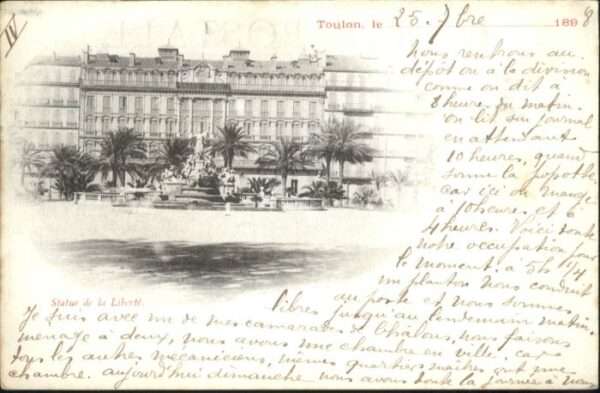 IV
Toulon, le 25. 7bre 1898
Nous rentrons au
dépôt ou à la division
comme on dit à
8 heure du matin.
on lit son journal
en attendant
10 heures, quand
sonne la popotte
car ici on mange
à 10 heures et à
4 heures. Voici toute
notre occupation pour
le moment. à 5h 1/4
un planton nous conduit
au poste et nous sommes
libres jusqu'au lendemain matin.
Statue de la Liberté.
Je suis avec un de mes camarades de Chalons, nous faisons
ménage à deux, nous avons une chambre en ville, car
tous les autres mécaniciens, mêmes quartiers maîtres ont une
chambre. aujourd'hui dimanche nous avons toute la journée à nous